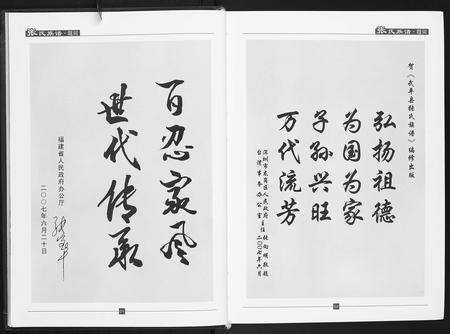 张氏族谱·题词
百忍家风
世代传承
福建省人民政府办公厅
二〇〇七年六月二十日
张氏族谱·题词
贺《武平县张氏族谱》编修出版
弘扬祖德
为国为家
子孙兴旺
万代流芳
深圳市龙岗区人民政府
台湾事务办公室主任 张向明敬题
二〇〇七年六月